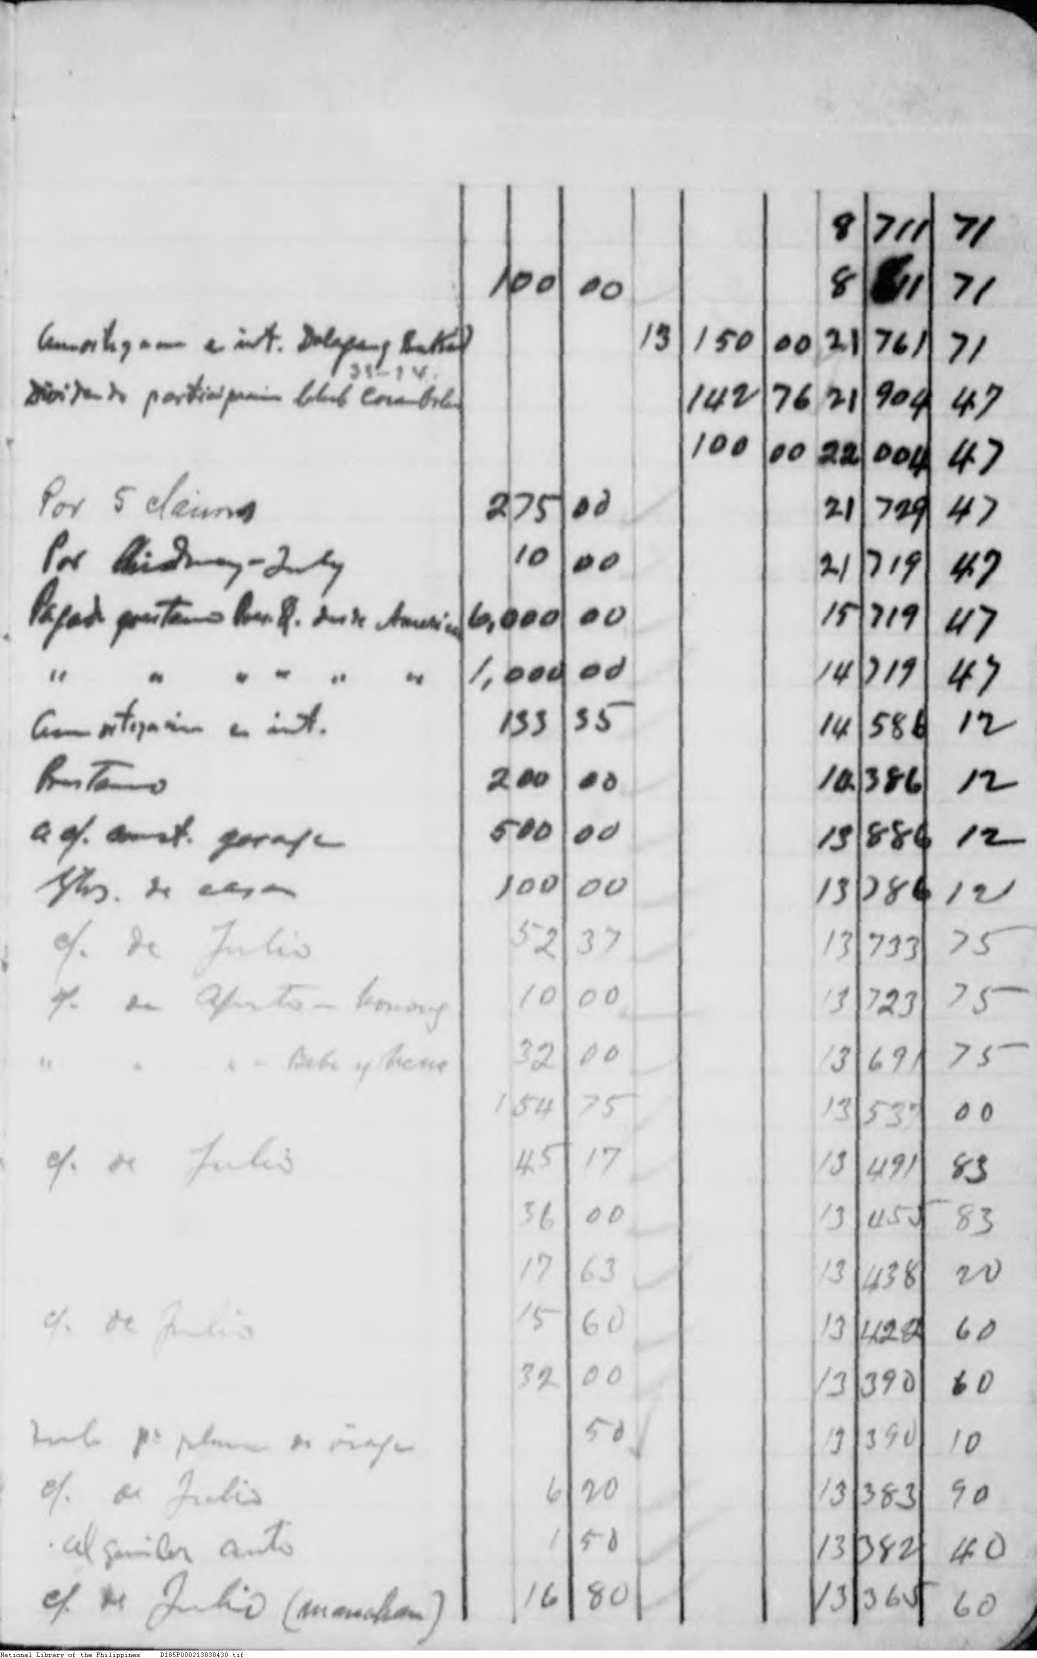 8 711 71
100 00 8 611 71
Amortizacion e int. Dalapang Buktod 13 150 00 21 761 71
33-34.
Dividendo participacion Club 142 76 21 904 47
100 00 22 004 47
Por 5 claims 275 00 21 729 47
Por July 10 00 21 719 47
Pagado prestamo Pres. Q. desde America 6,000 00 15 719 47
" " " " " " 1,000 00 14 719 47
Amortizacion e int. 133 35 14 586 12
Prestamo 200 00 14 386 12
a cf. const. garage 500 00 13 886 12
Gtos. de casa 100 00 13 786 12
cf. de Julio 52 37 13 733 75
cf. de Agosto - 10 00 13 723 75
" " " - Bebe y Nene 32 00 13 691 75
154 75 13 537 00
cf. de Julio 45 17 13 491 83
36 00 13 455 83
17 63 13 438 20
cf. de Julio 15 60 13 422 60
32 00 13 390 60
50 13 390 10
cf. de Julio 6 20 13 383 90
alquiler auto 1 50 13 382 40
cf. de Julio (manahan) 16 80 13 365 60
National Library of the Philippines D185P000213838430.tif